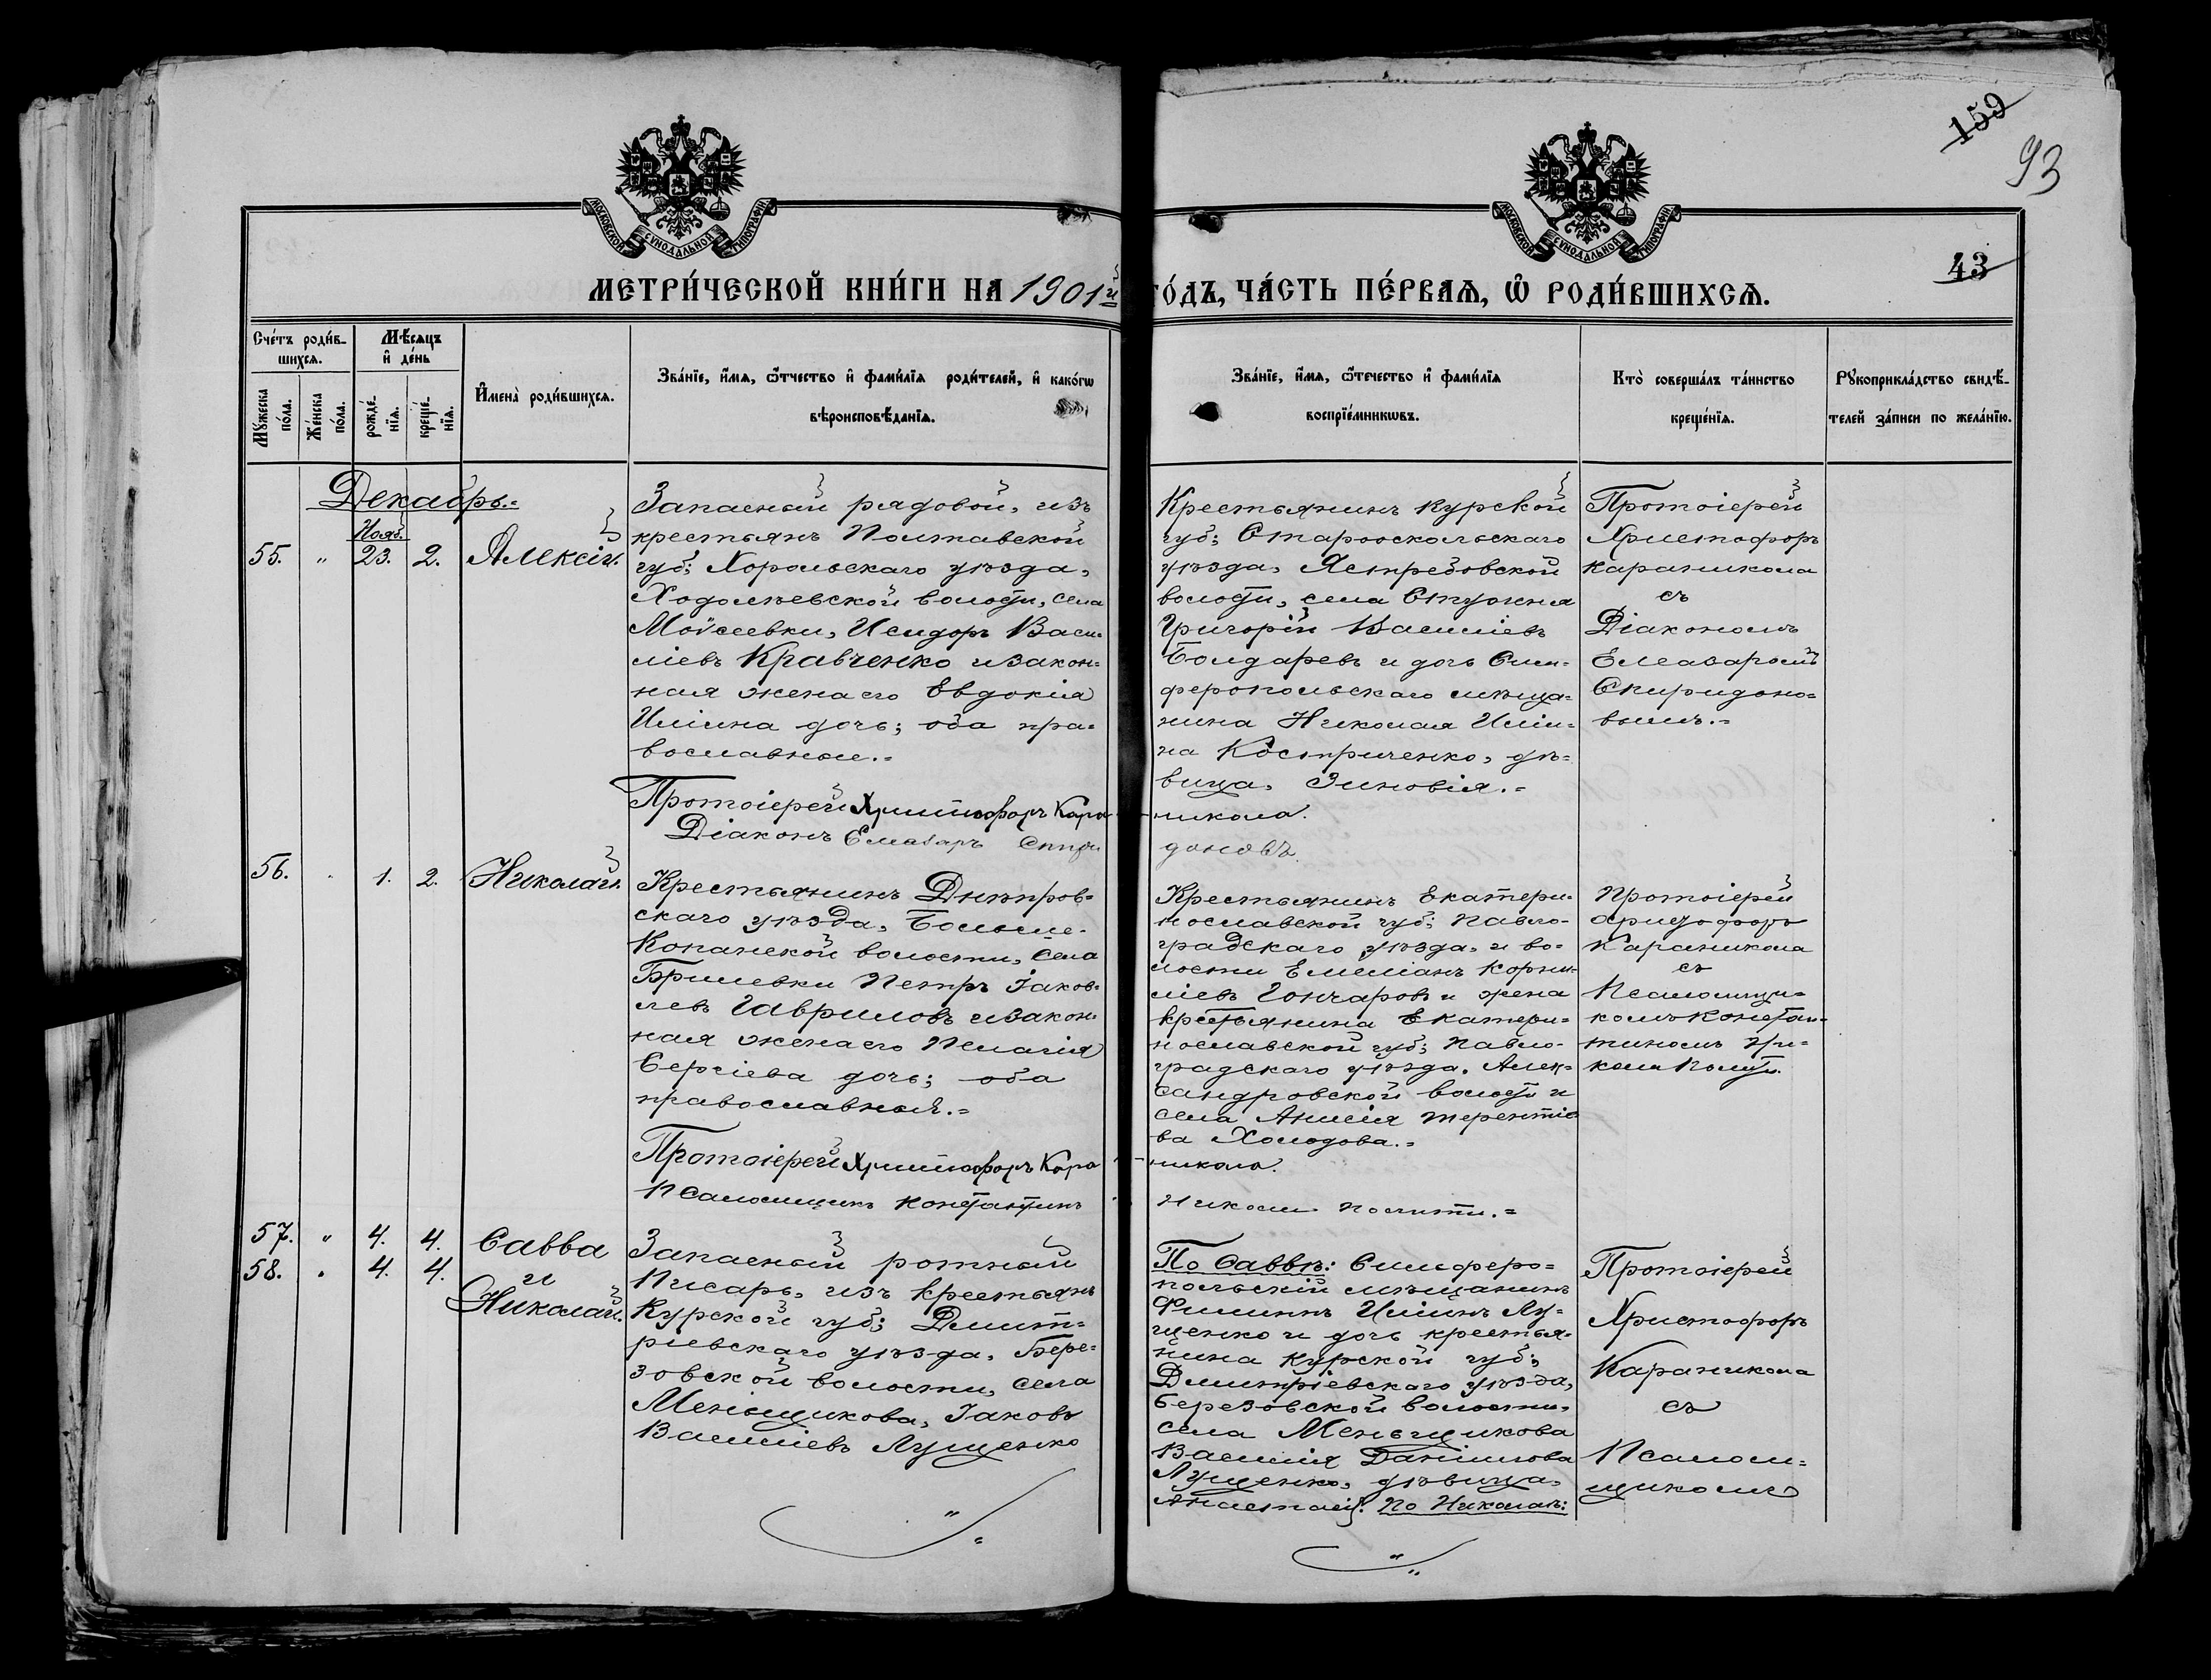 159
93
43
МОСКОВСКОЙ СѴНОДАЛЬНОЙ ТИПОГРАФІИ
МОСКОВСКОЙ СѴНОДАЛЬНОЙ ТИПОГРАФІИ
МЕТРИ́ЧЕСКОЙ КНИ́ГИ НА 1901й
ГО́ДЪ, ЧА́СТЬ ПЕ́РВАѦ, Ѽ РОДИ́ВШИХСѦ.
Сче́тъ роди́в-
шихсѧ.
Мꙋ́жеска по́ла.
Же́нска по́ла.
Мѣ́сѧцъ
и҆ де́нь
рожде́-
нїѧ.
креще́-
нїѧ.
И҆мена̀ роди́вшихсѧ.
Зва́нїе, и҆́мѧ, ѻ҆́тчество и҆ фами́лїѧ роди́телей, и҆ како́гѡ
вѣроисповѣ́данїѧ.
Зва́нїе, и҆́мѧ, ѻ҆́течество и҆ фами́лїѧ
воспрїе́мникѡвъ.
Кто̀ соверша́лъ та́инство
креще́нїѧ.
Рꙋкоприкла́дство свидѣ́-
телей за́писи по жела́нїю.
Декабрь.=
Нояб.
55. " 23. 2. Алексій.
Запасный рядовой, изъ
крестьянъ Полтавской
губ; Хорольскаго уѣзда,
Ходолѣевской волости, села
Моѵсеевки, Исидоръ Васи-
ліевъ Кравченко и закон-
ная жена его Евдокія
Иліина дочь; оба пра-
вославные.=
Протоіерей Христофоръ Кара
Діаконъ Елеазаръ Спири
Крестьянинъ Курской
губ; Старооскольскаго
уѣзда, Ястребовской
волости, села Стужня
Григорій Василіевъ
Бондаревъ и дочь Сим-
феропольскаго мѣща-
нина Николая Иліи-
на Костриченко, дѣ-
вица, Зиновія.=
никола.
доновъ.
Протоіерей
Христофоръ
Караникола
съ
Діакономъ
Елеазаромъ
Спиридоно-
вымъ.=
56. " 1. 2. Николай.
Крестьянинъ Днѣпров-
скаго уѣзда, Больше-
Копанской волости, села
Брилевки Петръ Іаков-
левъ Гавриловъ и закон-
ная жена его Пелагія
Сергіева дочь; оба
православные.=
Протоіерей Христофоръ Кара
Псаломщикъ Константинъ
Крестьянинъ Екатери-
нославской губ; Павло-
градскаго уѣзда, и во-
лости Емеліанъ Корни-
ліевъ Гончаровъ и жена
крестьянина Екатери-
нославской губ; Павло-
градскаго уѣзда, Алек-
сандровской волости и
села Анисія Терентіе
ва Холодова.=
никола.
Николи Политти.=
Протоіерей
Христофоръ
Караникола
съ
Псаломщи-
комъ Констан-
тиномъ Ни-
коли
57. " 4. 4. Савва
58. " 4. 4. и
Николай.
Запасный ротный
Писарь, изъ крестьянъ
Курской губ; Дмит-
ріевскаго уѣзда, Бере-
зовской волости, села
Меньщикова, Іаковъ
Василіевъ Лущенко
По Саввѣ: Симферо-
польскій мѣщанинъ
Филиппъ Иліинъ Лу-
щенко и дочь крестья-
нина Курской губ;
Дмитріевскаго уѣзда,
Березовской волости,
села Меньщикова
Василія Даніилова
Лущенко, дѣвица,
Анастасія. По Николаѣ:
Протоіерей
Христофоръ
Караникола
съ
Псалом-
щикомъ